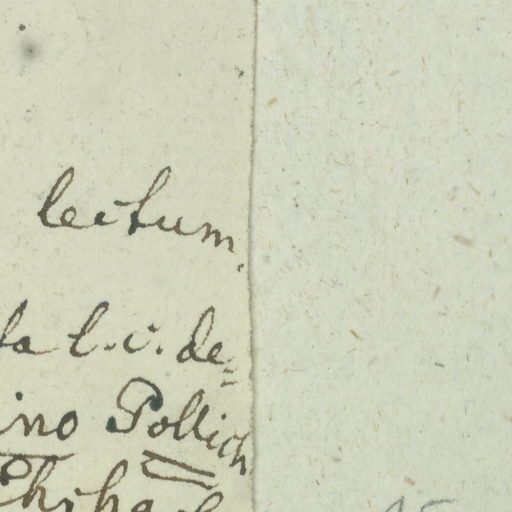 lectum.
la l. c. de=
ino Pollich